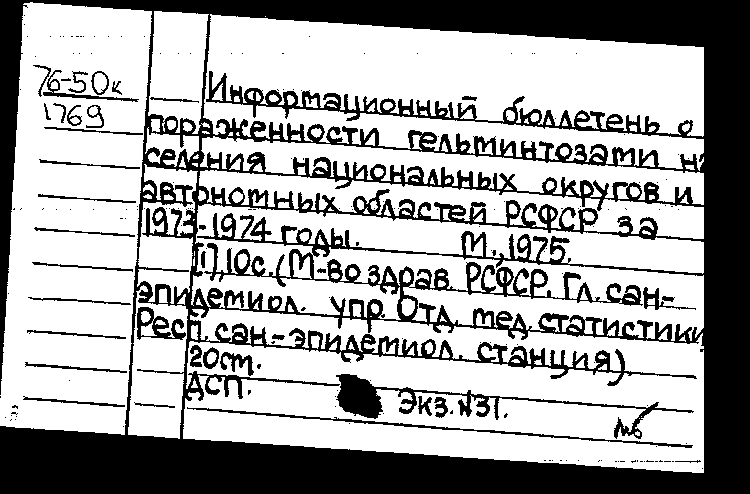 76-50к
1769
Информационный бюллетень о
пораженности гельминтозами на
селения национальных округов и
автономных областей РСФСР за
1973-1974 годы. М.,1975.
[1],10с. (М-во здрав. РСФСР. Гл. сан-
эпидемиол. упр. Отд. мед. статистики
Респ. сан-эпидемиол. станция).
20см.
ДСП. Экз.№31.